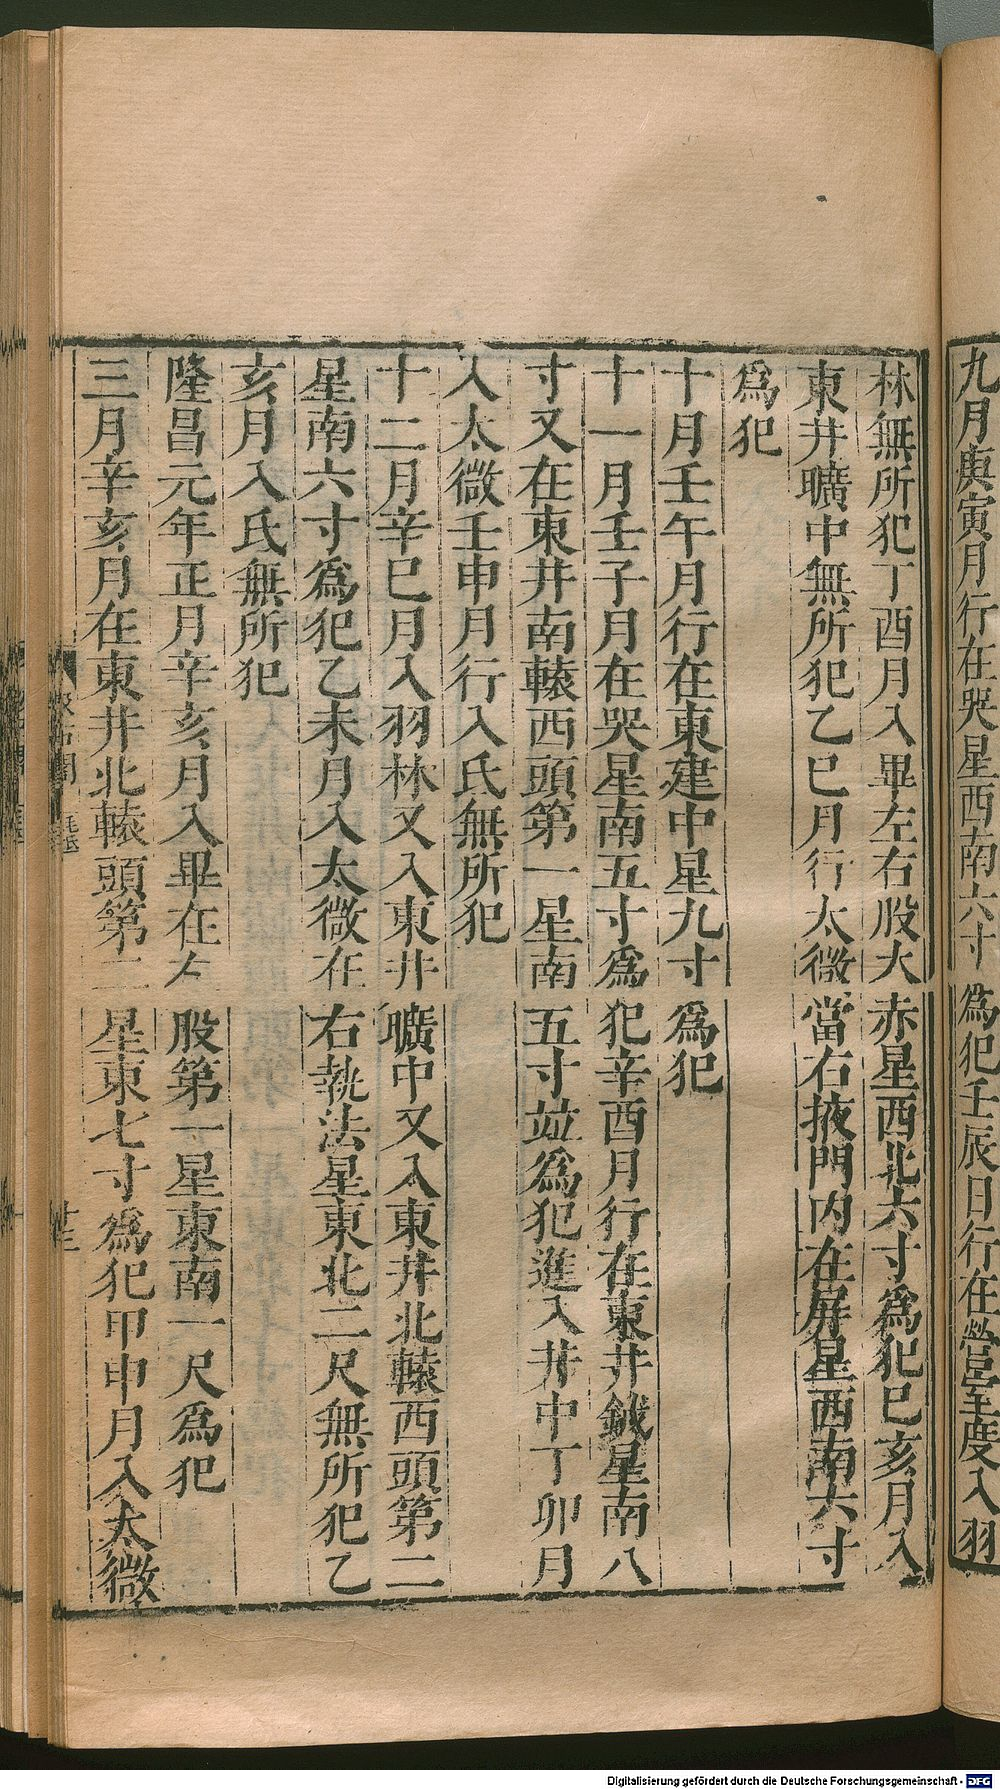 九月庚寅月行在哭星西南六寸爲犯壬辰日行在營室度入羽
林無所犯丁酉月入畢左右股大赤星西北六寸爲犯巳亥月入
東井曠中無所犯乙巳月行太微當右掖門内在屏星西南六寸
爲犯
十月壬午月行在東建中星九寸爲犯
十一月壬子月在哭星南五寸爲犯辛酉月行在東井鉞星南八
寸又在東井南轅西頭第一星南五寸竝爲犯進入井中丁卯月
入太微壬申月行入氐無所犯
十二月辛巳月入羽林又入東井曠中又入東井北轅西頭第二
星南六寸爲犯乙未月入太微在右執法星東北二尺無所犯乙
亥月入氐無所犯
隆昌元年正月辛亥月入畢在左股第一星東南一尺爲犯
三月辛亥月在東井北轅頭第二星東七寸爲犯甲申月入太微
Digitalisierung gefördert durch die Deutsche Forschungsgemeinschaft - DFG